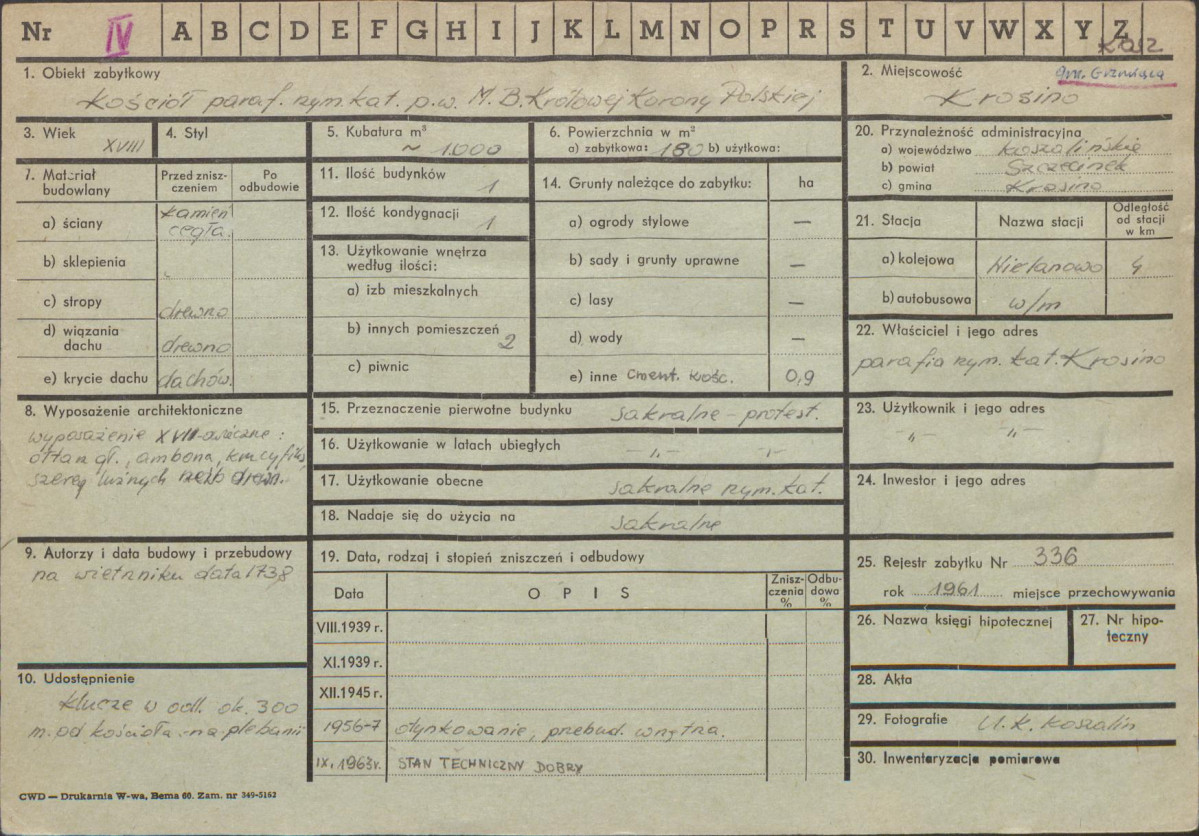 Nr IV A B C D E F G H I J K L M N O P R S T U V W X Y Z
KOSZ.
1. Obiekt zabytkowy
Kościół paraf. rzym. kat. p.w. M.B. Królowej Korony Polskiej
2. Miejscowość
gm. Grzmiąca
Krosino
3. Wiek
XVIII
4. Styl
5. Kubatura m³
~ 1.000
6. Powierzchnia w m²
a) zabytkowa: 180 b) użytkowa:
7. Materiał budowlany
Przed zniszczeniem
Po odbudowie
a) ściany kamień cegła.
b) sklepienia
c) stropy drewno
d) wiązania dachu drewno
e) krycie dachu dachów.
8. Wyposażenie architektoniczne
wyposażenie XVII-wieczne:
ołtarz gł., ambona, krucyfiks,
szereg luźnych rzeźb drewn.
9. Autorzy i data budowy i przebudowy
na wietrzniku data 1738
10. Udostępnienie
klucze w odl. ok. 300
m. od kościoła na plebanii
11. Ilość budynków 1
12. Ilość kondygnacji 1
13. Użytkowanie wnętrza według ilości:
a) izb mieszkalnych
b) innych pomieszczeń 2
c) piwnic
14. Grunty należące do zabytku: ha
a) ogrody stylowe —
b) sady i grunty uprawne —
c) lasy —
d) wody —
e) inne cment. kośc. 0,9
15. Przeznaczenie pierwotne budynku sakralne - protest.
16. Użytkowanie w latach ubiegłych -„- -„-
17. Użytkowanie obecne sakralne rzym. kat.
18. Nadaje się do użycia na sakralne
19. Data, rodzaj i stopień zniszczeń i odbudowy
Data OPIS Zniszczenia % Odbudowa %
VIII.1939 r.
XI.1939 r.
XII.1945 r.
1956-7 otynkowanie, przebud. wnętrza.
IX, 1963r. STAN TECHNICZNY DOBRY
20. Przynależność administracyjna
a) województwo koszalińskie
b) powiat Szczecinek
c) gmina Krosino
21. Stacja Nazwa stacji Odległość od stacji w km
a) kolejowa Wielanowo 4
b) autobusowa w/m
22. Właściciel i jego adres
parafia rzym. kat. Krosino
23. Użytkownik i jego adres
-„- -„-
24. Inwestor i jego adres
25. Rejestr zabytku Nr 336
rok 1961 miejsce przechowywania
26. Nazwa księgi hipotecznej
27. Nr hipoteczny
28. Akta
29. Fotografie U.K. Koszalin
30. Inwentaryzacja pomiarowa
CWD — Drukarnia W-wa, Bema 60. Zam. nr 349-5162